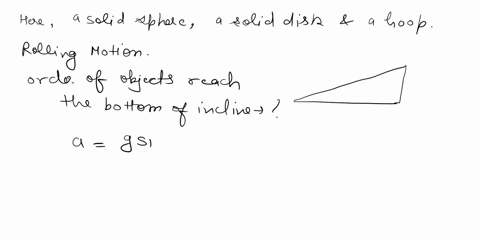 Here, a solid sphere, a solid disk & a hoop.
Rolling Motion.
order of objects reach
the bottom of incline → ?
a = gsi